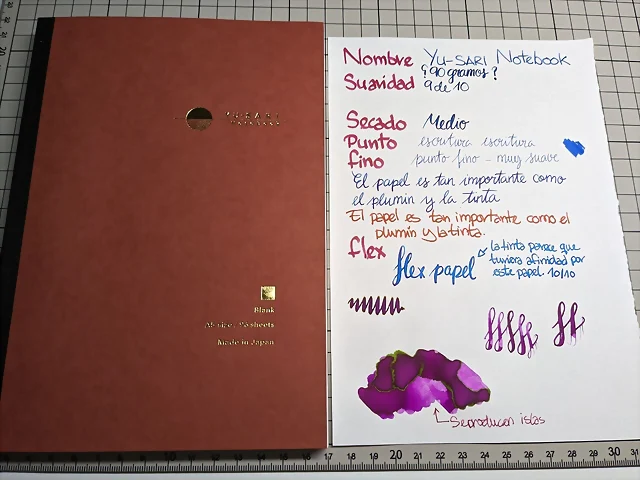 YUKARI
Blank
A5 size - 96 sheets
Made in Japan
Nombre Yu-SARI Notebook
¿90 gramos?
Suavidad 9 de 10
Secado Medio
Punto escritura escritura
fino punto fino - muy suave
El papel es tan importante como
el plumin y la tinta
El papel es tan importante como el
plumin y la tinta.
flex
flex papel
la tinta parece que
tuviera afinidad por
este papel. 10/10
Se producen islas
17 18 19 20 21 22 23 24 25 26 27 28 29 30 31